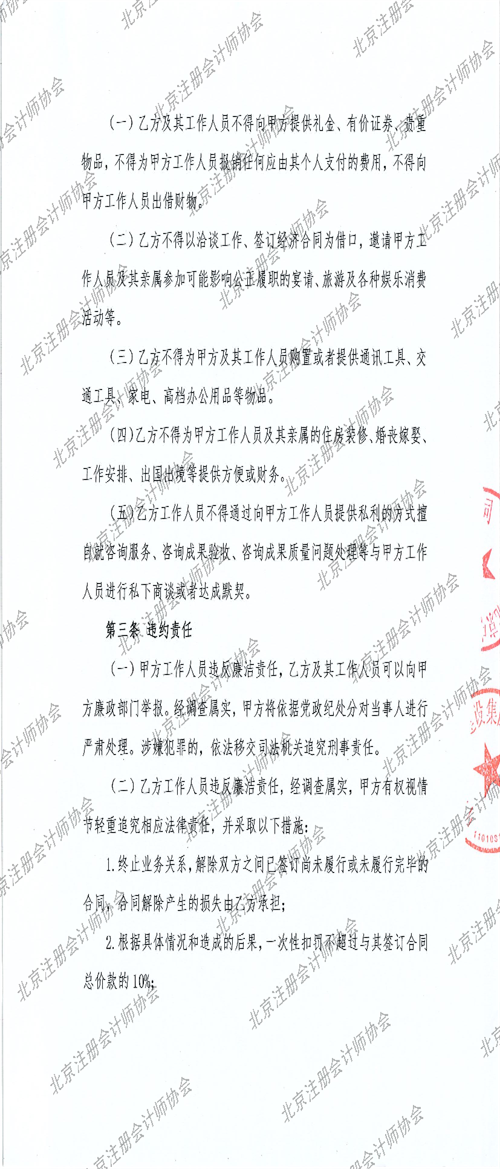 (一)乙方及其工作人员不得向甲方提供礼金、有价证券、贵重
物品,不得为甲方工作人员报销任何应由其个人支付的费用,不得向
甲方工作人员出借财物。
(二)乙方不得以洽谈工作、签订经济合同为借口,邀请甲方工
作人员及其亲属参加可能影响公正履职的宴请、旅游及各种娱乐消费
活动等。
(三)乙方不得为甲方及其工作人员购置或者提供通讯工具、交
通工具、家电、高档办公用品等物品。
(四)乙方不得为甲方工作人员及其亲属的住房装修、婚丧嫁娶、
工作安排、出国出境等提供方便或财务。
(五)乙方工作人员不得通过向甲方工作人员提供私利的方式擅
自就咨询服务、咨询成果验收、咨询成果质量问题处理等与甲方工作
人员进行私下商谈或者达成默契。
第三条 违约责任
(一)甲方工作人员违反廉洁责任,乙方及其工作人员可以向甲
方廉政部门举报。经调查属实,甲方将依据党政纪处分对当事人进行
严肃处理。涉嫌犯罪的,依法移交司法机关追究刑事责任。
(二)乙方工作人员违反廉洁责任,经调查属实,甲方有权视情
节轻重追究相应法律责任,并采取以下措施:
1.终止业务关系,解除双方之间已签订尚未履行或未履行完毕的
合同,合同解除产生的损失由乙方承担;
2.根据具体情况和造成的后果,一次性扣罚不超过与其签订合同
总价款的10%;
司
设集
北京注册会计师协会